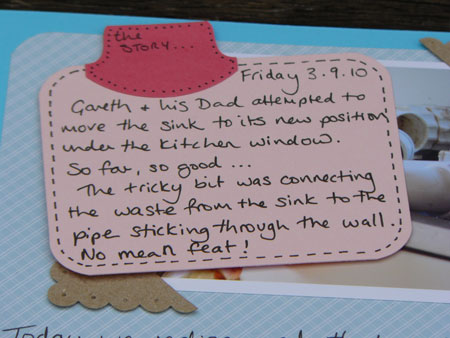 the
STORY...
Friday 3.9.10
Gareth + his Dad attempted to
move the sink to its new position
under the kitchen window.
So far, so good...
The tricky bit was connecting
the waste from the sink to the
pipe sticking through the wall.
No mean feat!
Today we